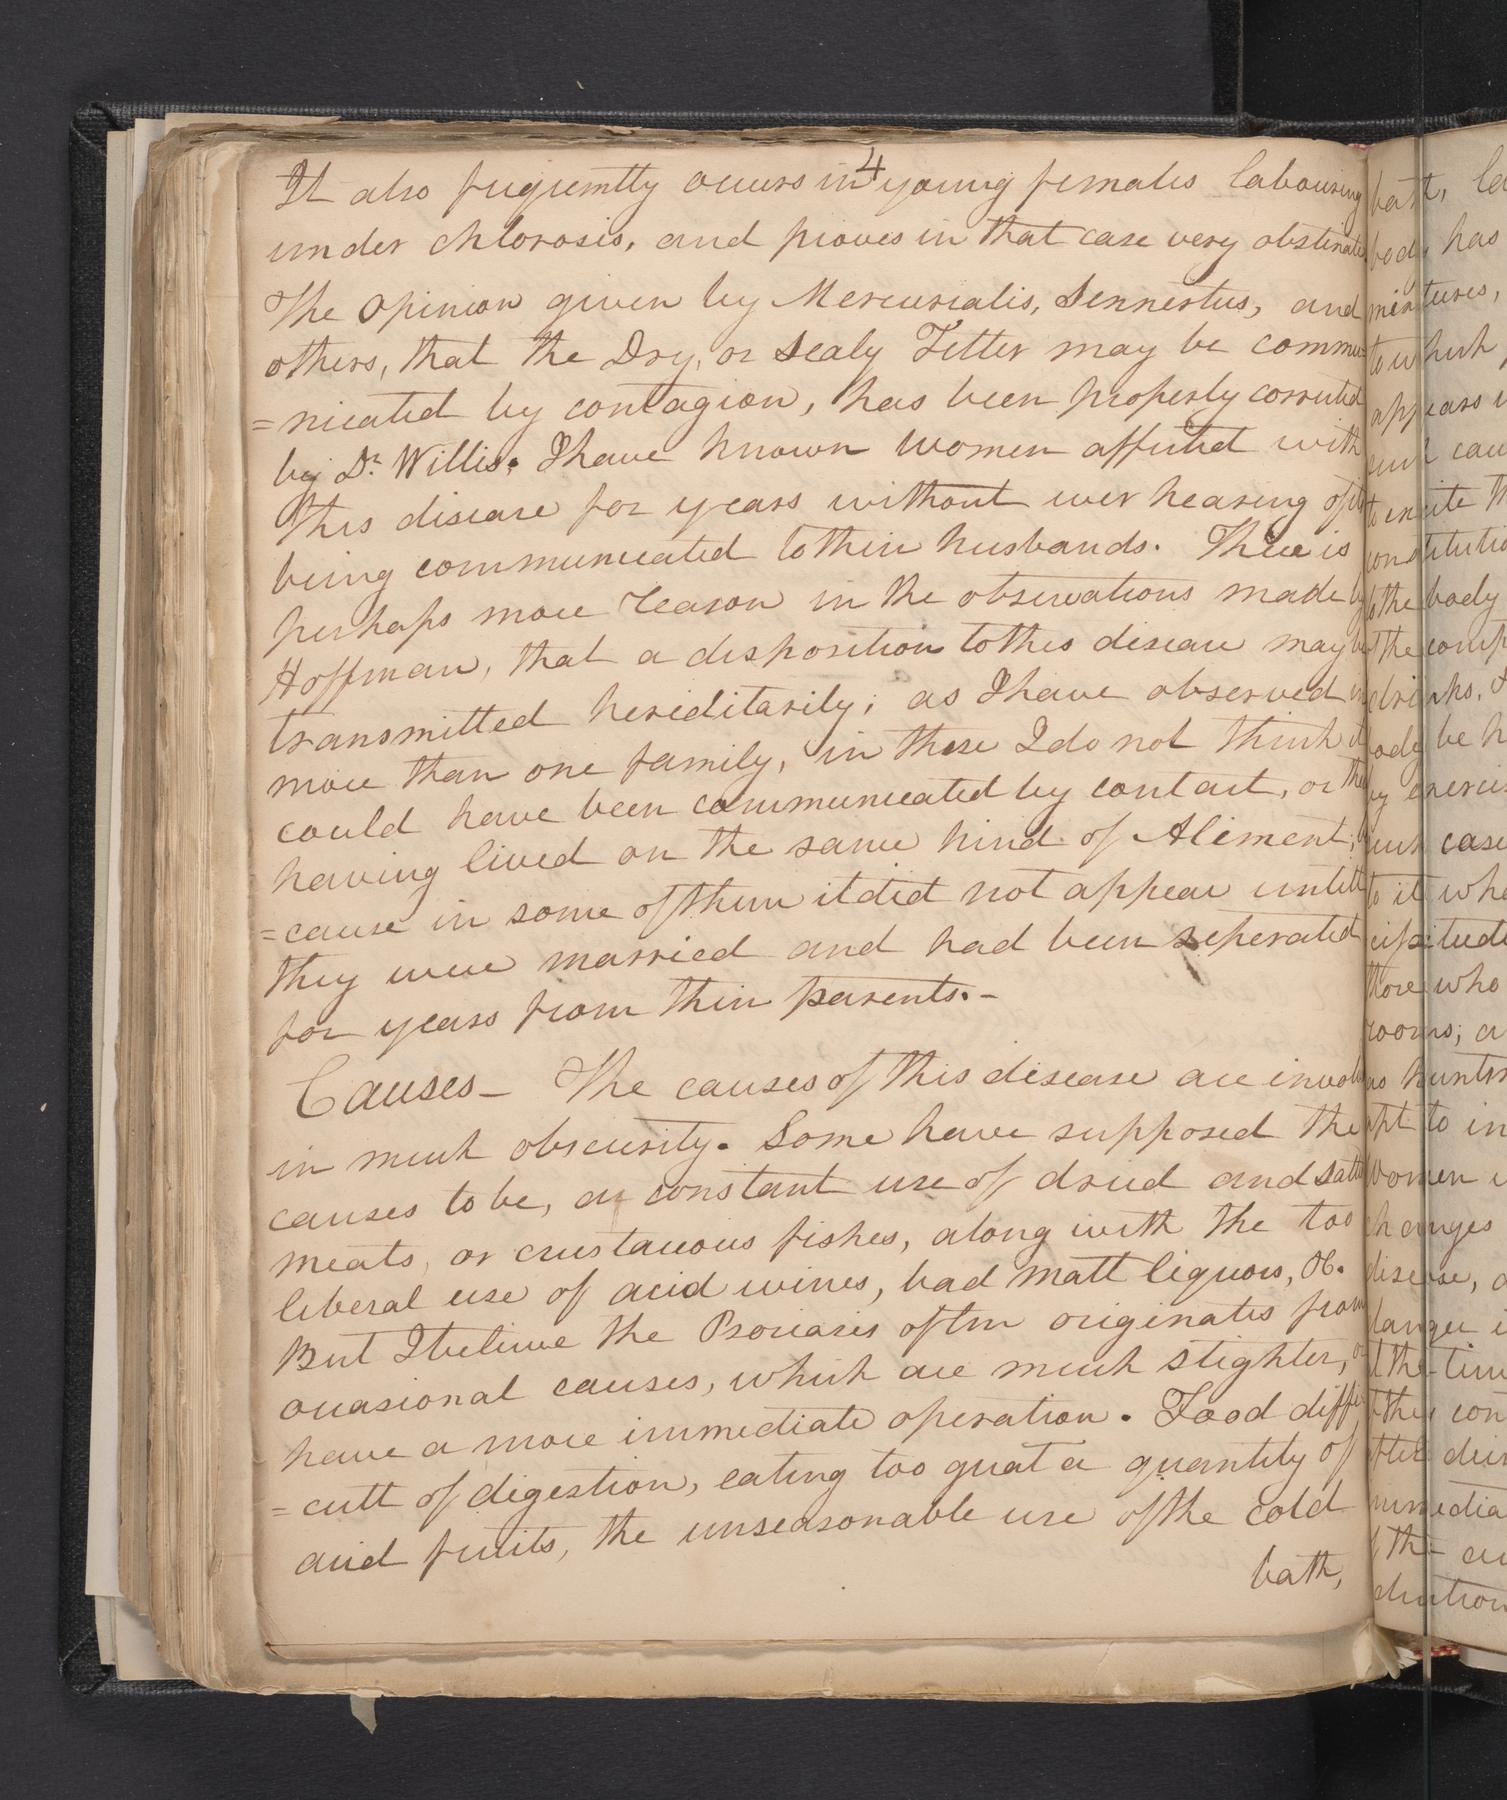 4
It also frequently occurs in young females labouring
under chlorosis, and proves in that case very obstinate
The Opinion given by Mercurialis, Sennertus, and
others, that the Dry, or Scaly Tetter may be commu-
=nicated by contagion, has been properly corrected
by Dr. Willis. I have known women affected with
this disease for years without ever hearing of its
being communicated to their husbands. There is
perhaps more reason in the observations made by
Hoffman, that a disposition to this disease may be
transmitted hereditarily; as I have observed in
more than one family, in these I do not think it
could have been communicated by contact, or the
having lived on the same kind of Aliment; be
=cause in some of them it did not appear untill
they were married and had been seperated
for years from their parents.-
Causes- The causes of this disease are involv
in much obscurity. Some have supposed the
causes to be, a constant use of dried and salt
meats, or crustaceous fishes, along with the too
liberal use of acid wines, bad matt liquors, &c.
But I believe the Psoriasis often originates from
occasional causes, which are much slighter, or
have a more immediate operation. Food diffi
=cult of digestion, eating too great a quantity of
acid fruits, the unseasonable use of the cold
bath,